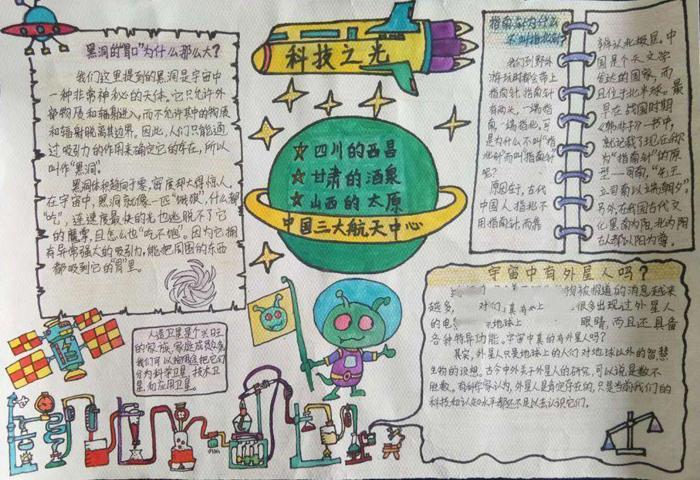 科技之光
黑洞的“胃口”为什么那么大?
我们这里提到的黑洞是宇宙中
一种非常神秘的天体。它只允许外
部物质和辐射进入,而不允许其中的物质
和辐射脱离其边界。因此,人们只能通
过吸引力的作用来确定它的存在,所以
叫作“黑洞”。
黑洞体积趋向于零,密度却大得惊人,
在宇宙中,黑洞就像一匹“饿狼”,什么都
“吃”,连速度最快的光也逃脱不了它
的魔掌,且怎么也“吃不饱”。因为它拥
有异常强大的吸引力,能把周围的东西
都吸到它的“胃”里。
四川的西昌
甘肃的酒泉
山西的太原
中国三大航天中心
指南针为什么
不叫指北针
我们到野外
游玩时都会带上
指南针,指南针
有两头,一端指
南,一端指北,可
是为什么不叫“指
北针”而叫“指南针”
呢?
原因在于,古代
中国人指北不
用指南针,而靠
辨认北极星,中
国是个天文学
发达的国家,而
且位于北半球。最
早在战国时期
《韩非子》一书中,
就记载了现在称
为“指南针”的原
型——司南,“先王
立司南以端朝夕”
另外在我国古代文
化里南为阳,北为阴
在人都认阳为尊。
宇宙中有外星人吗?
被报道的消息越来
越多, 对们 真有 上 很多出现过外星人
的电 地球上 眼睛,而且还具备
各种特异功能。宇宙中真的有外星人吗?
其实,外星人只是地球上的人们对地球以外的智慧
生物的设想。古今中外关于外星人的研究,可以说是数不
胜数。有科学家认为,外星人是肯定存在的,只是当前我们的
科技和认知水平都还不足以去认识它们。
人造卫星是个兴旺
的家族,家庭成员众多
我们可以按用途把它们
分为科学卫星,技术卫
星和应用卫星。